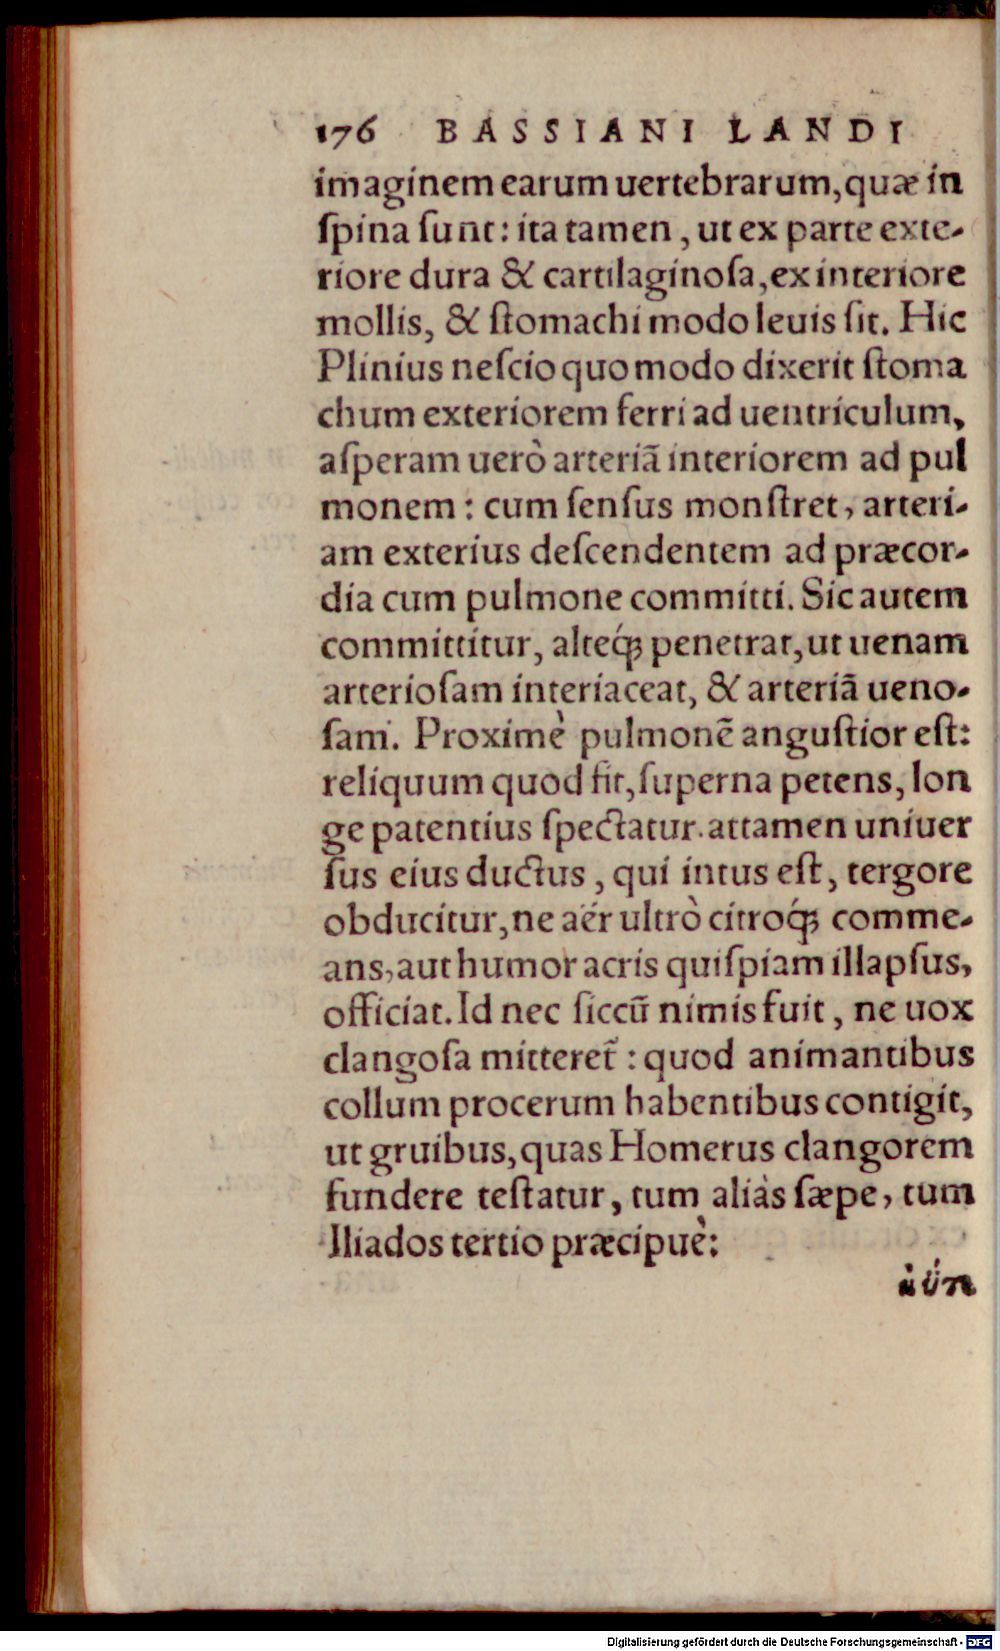 176 BASSIANI LANDI
imaginem earum uertebrarum, quæ in
ſpina ſunt: ita tamen, ut ex parte exte-
riore dura & cartilaginoſa, ex interiore
mollis, & ſtomachi modo leuis ſit. Hic
Plinius neſcio quo modo dixerit ſtoma
chum exteriorem ferri ad uentriculum,
aſperam uerò arteriã interiorem ad pul
monem: cum ſenſus monſtret, arteri-
am exterius deſcendentem ad præcor-
dia cum pulmone committi. Sic autem
committitur, alteq́; penetrat, ut uenam
arterioſam interiaceat, & arteriã ueno-
ſam. Proximè pulmonẽ anguſtior eſt:
reliquum quod fit, ſuperna petens, lon
ge patentius ſpectatur. attamen uniuer
ſus eius ductus, qui intus eſt, tergore
obducitur, ne aër ultrò citroq́; comme-
ans, aut humor acris quiſpiam illapſus,
officiat. Id nec ſiccũ nimis fuit, ne uox
clangoſa mitteret̃: quod animantibus
collum procerum habentibus contigit,
ut gruibus, quas Homerus clangorem
fundere teſtatur, tum aliàs ſæpe, tum
Iliados tertio præcipuè:
Digitalisierung gefördert durch die Deutsche Forschungsgemeinschaft - DFG